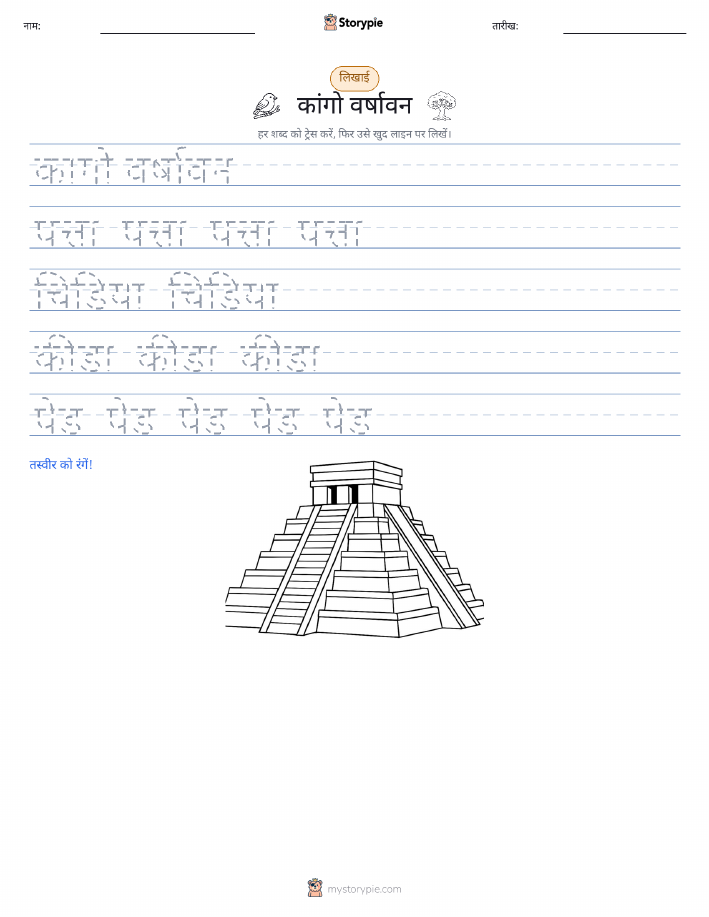 नाम:
Storypie
तारीख:
लिखाई
कांगो वर्षावन
हर शब्द को ट्रेस करें, फिर उसे खुद लाइन पर लिखें।
कागो वर्षावन
पत्ता पत्ता पत्ता पत्ता
चिडिया चिडिया
कीडा कीडा कीडा
पेड पेड पेड पेड पेड
तस्वीर को रंगें!
mystorypie.com